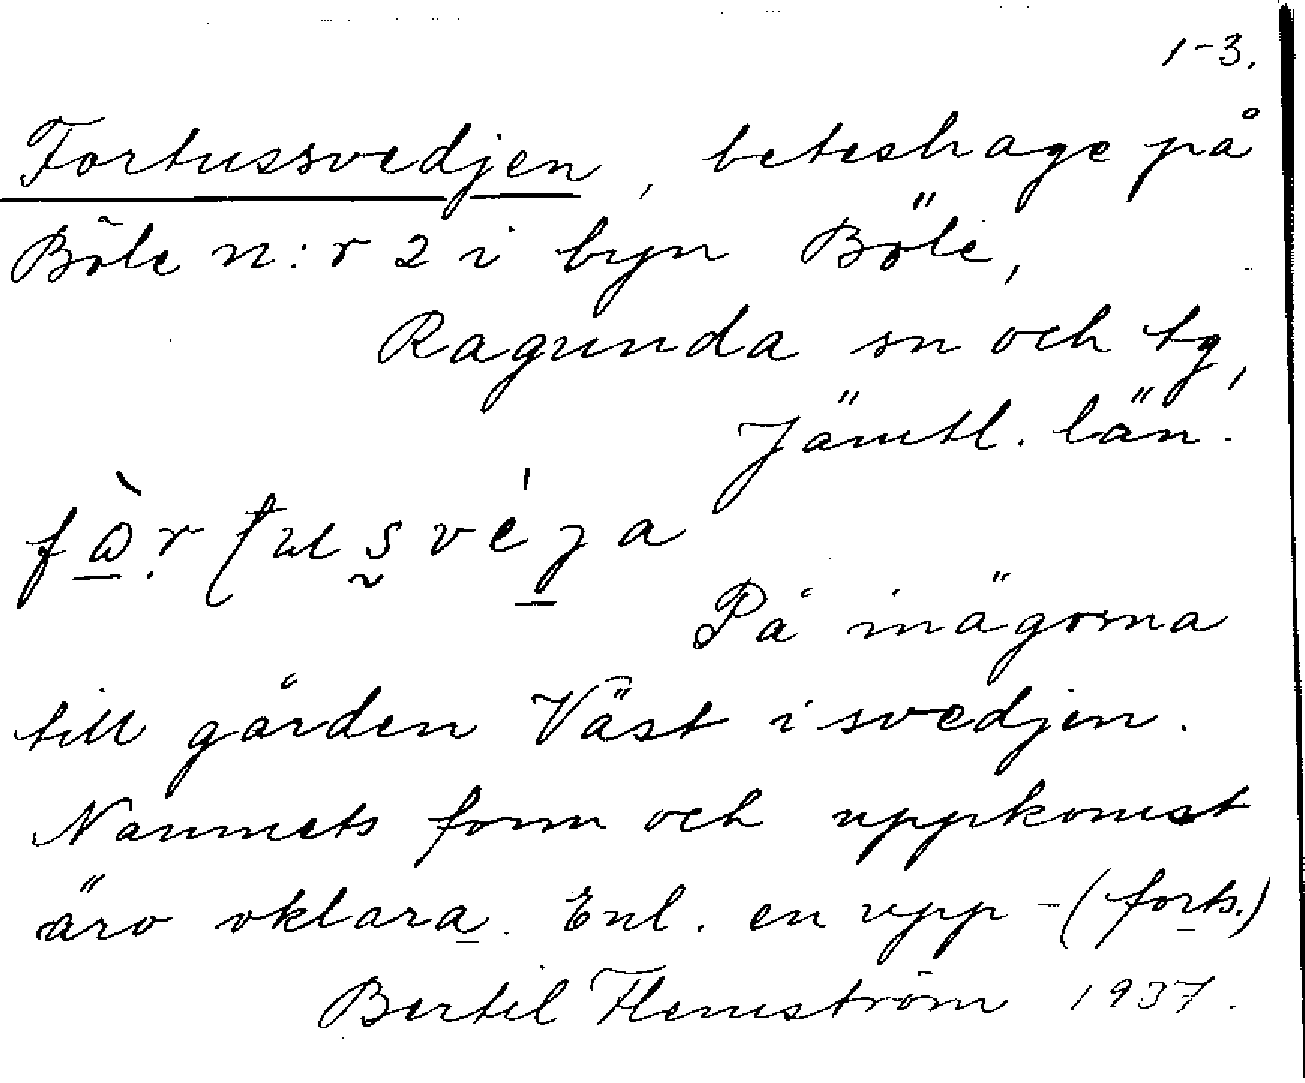 1-3.
Fortussvedjen, beteshage på
Böle n:r 2 i byn Böle,
Ragunda sn och tg,
Jämtl. län.
På inägorna
till gården Väst i svedjen.
Namnets form och uppkomst
äro oklara. Enl. en upp-(forts.)
Bertil Flemström 1937.